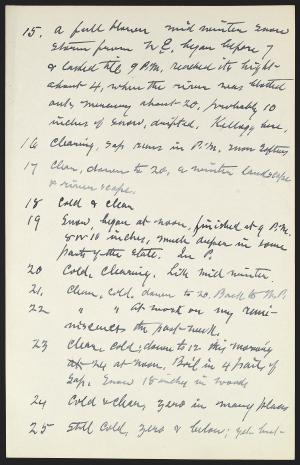 15. A full blown mid winter snow
storm from N E, began before 7
& lasted till 9 P.M. reached its hight
about 4, when the river was blotted
out, mercury about 20, probably 10
inches of snow, drifted. Kellogg here.
16 Clearing, sap runs in P.M. snow softens
17 Clear, down to 20, a winter landscape
& river scape.
18 Cold & clear
19 Snow, began at noon, finished at 9 P.M.
8 or 10 inches, much deeper in some
parts of the state. In P.
20 Cold, clearing. Like mid winter.
21, Clear, cold. down to 20. Back to W.P.
22 " " At work on my remi-
niscences the past week.
23 Clear, cold; down to 12 this morning
24 at noon. Boil in 4 pails of
sap. Snow 18 inches in woods
24 Cold & clear, zero in many places
25 Still cold, zero & below; yet